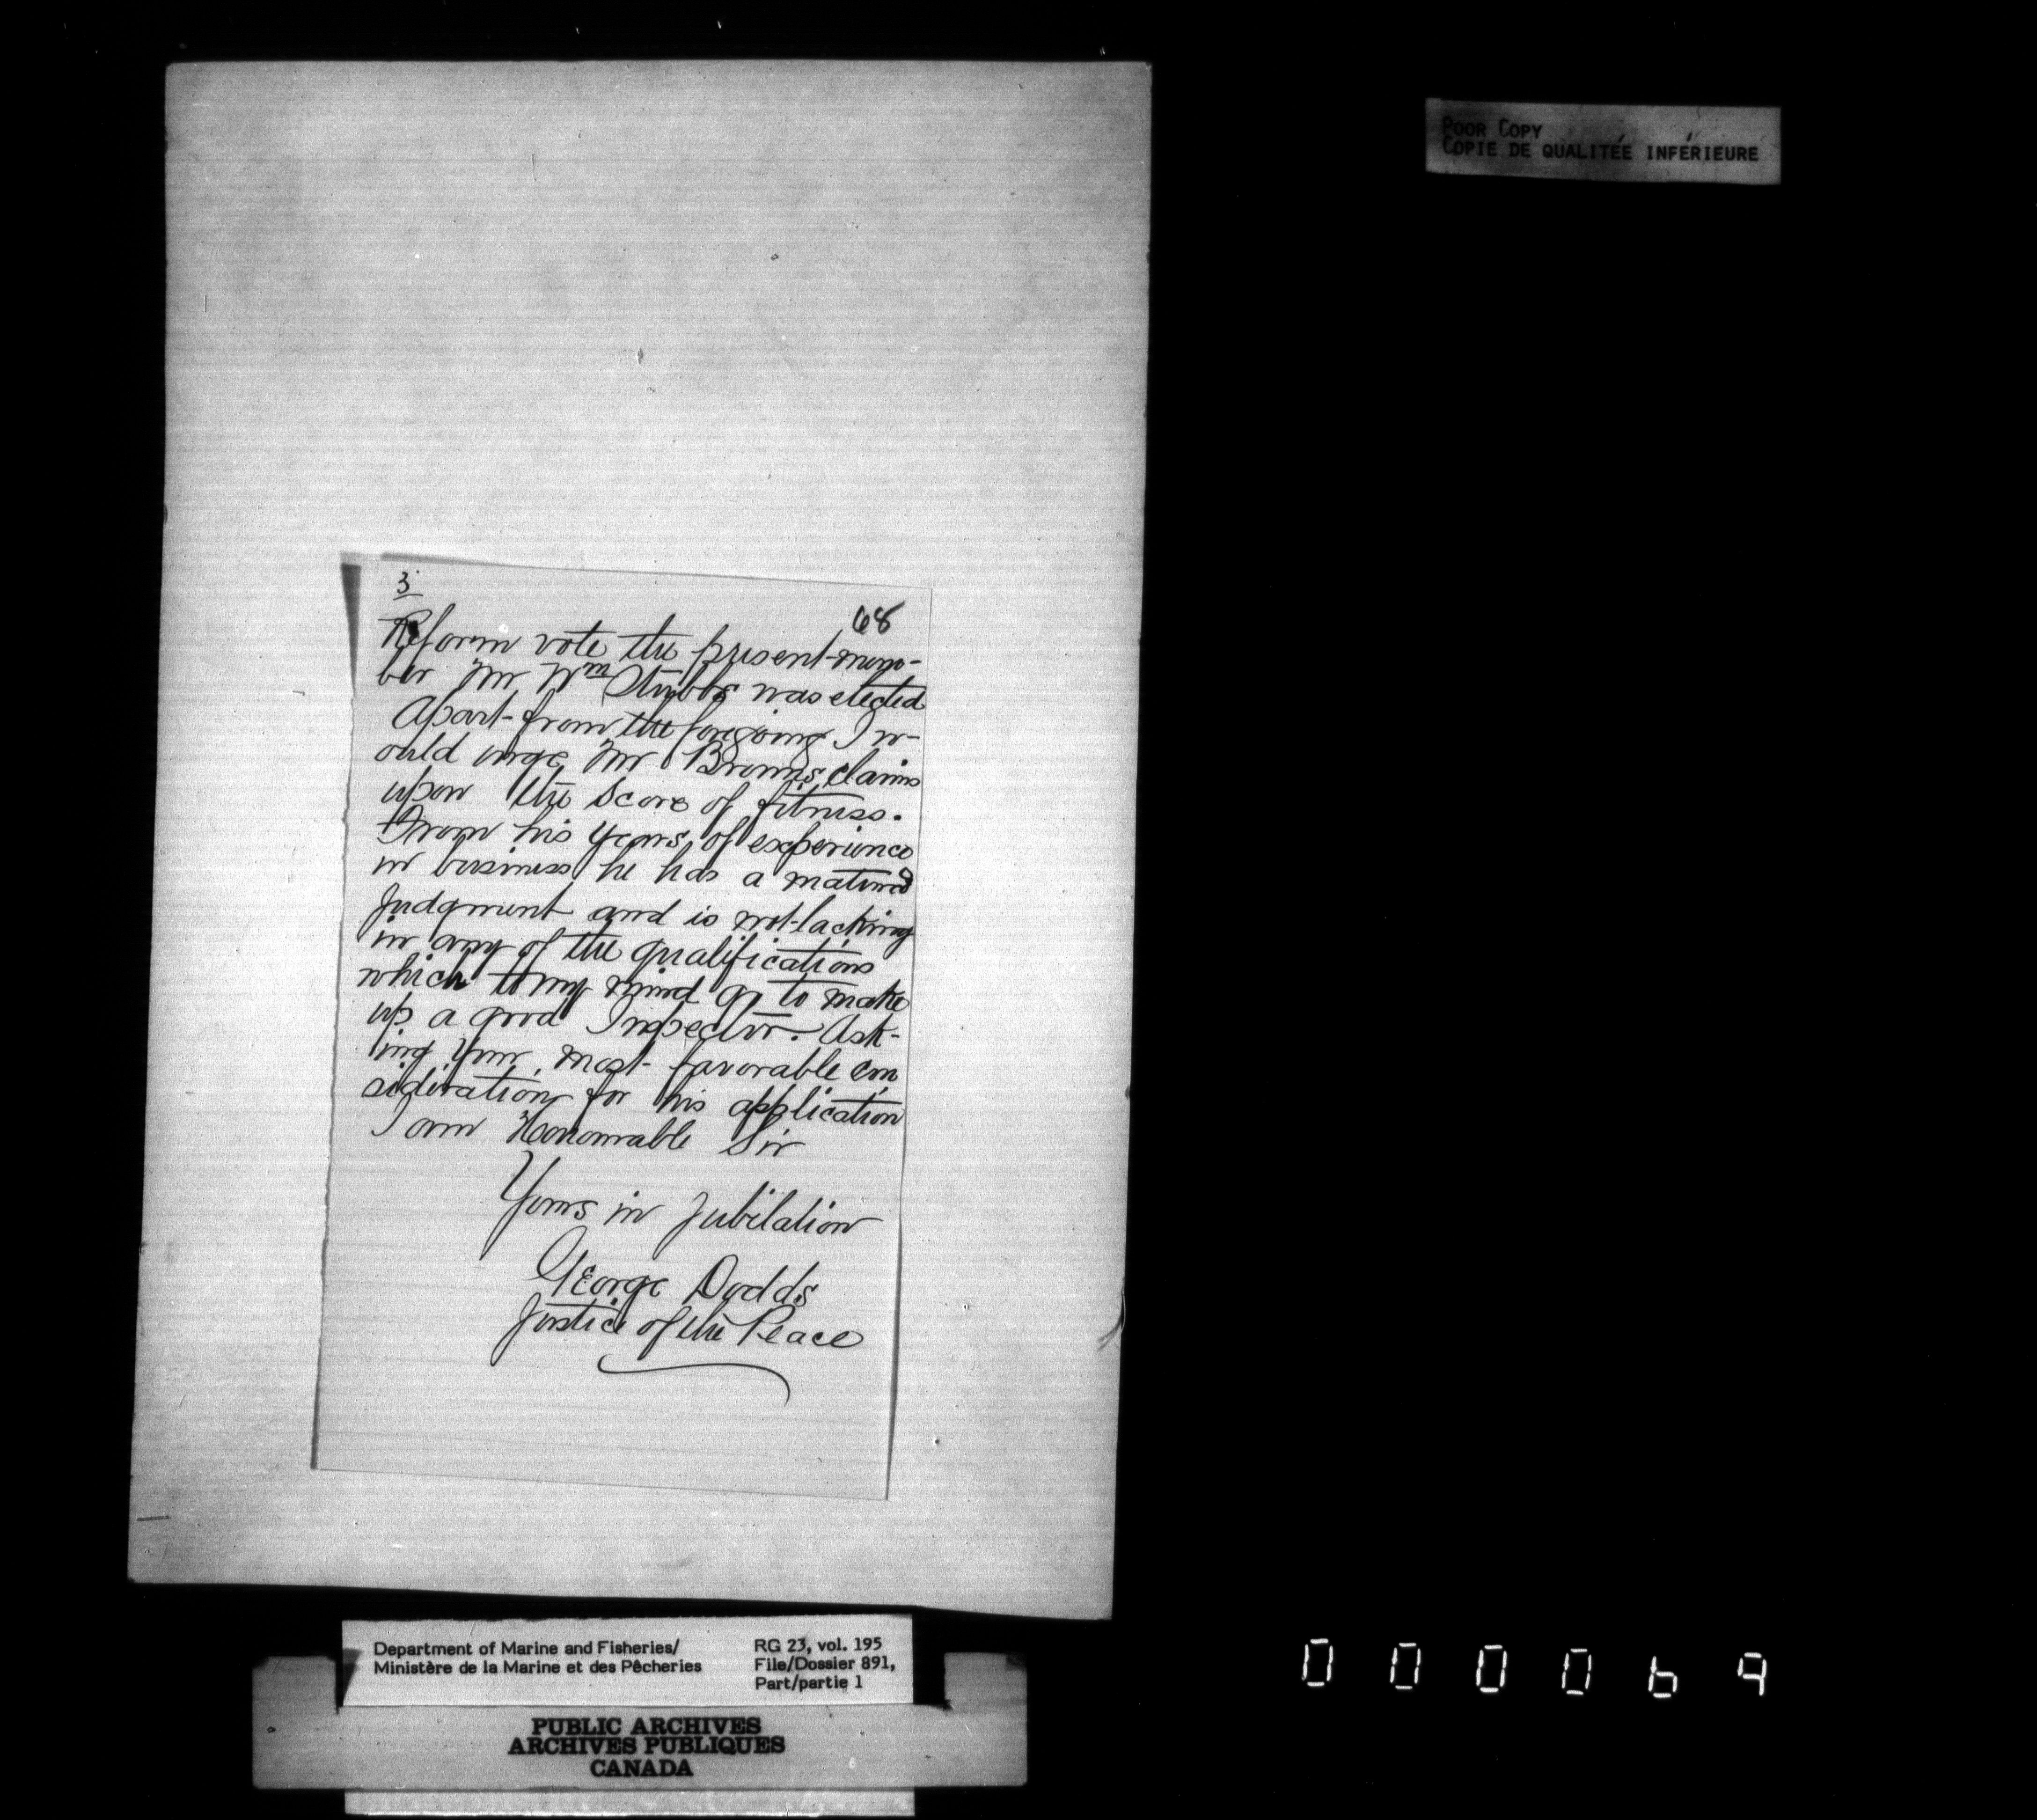 POOR COPY
COPIE DE QUALITÉE INFÉRIEURE
3
68
Reform vote the present mem-
ber Mr Wm Stubbs was elected
Apart from the foregoing I w-
ould urge Mr Browns claims
upon the score of fitness.
From his years of experience
in business he has a matured
judgment and is not lacking
in any of the qualifications
which to my mind go to make
up a good Inspector. Ask-
ing your most favorable con
sideration for his application
I am Honourable Sir
Yours in jubilation
George Dodds
Justice of the Peace
Department of Marine and Fisheries/
Ministère de la Marine et des Pêcheries
RG 23, vol. 195
File/Dossier 891,
Part/partie 1
PUBLIC ARCHIVES
ARCHIVES PUBLIQUES
CANADA
000069